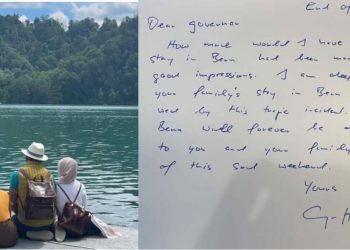 End of
Dear governor
How much would I have
stay in Bern had been mor
good impressions. I am dee
your family's stay in Bern
by this tragic incident.
Bern will forever be
to you and your family
of this sad weekend.
Yours